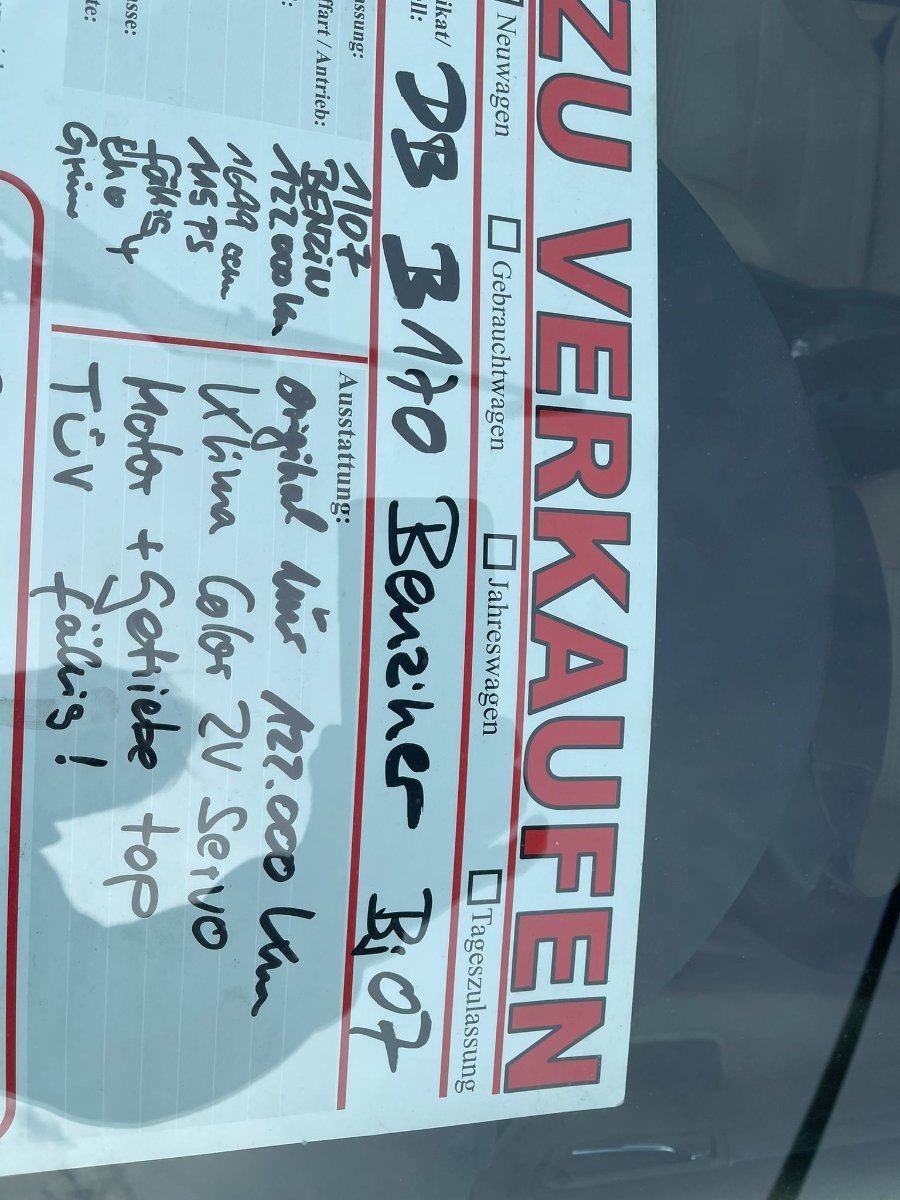 ZU VERKAUFEN
Neuwagen Gebrauchtwagen Jahreswagen Tageszulassung
ikat/
ll:
DB B170 Benziner Bj 07
assung:
1/07
ffart / Antrieb:
BENZIN
122 000 km
1699 ccm
115 PS
fällig
Grüne
Ausstattung:
original nur 122.000 km
Klima Color ZV Servo
Motor + Getriebe top
TÜV fällig!